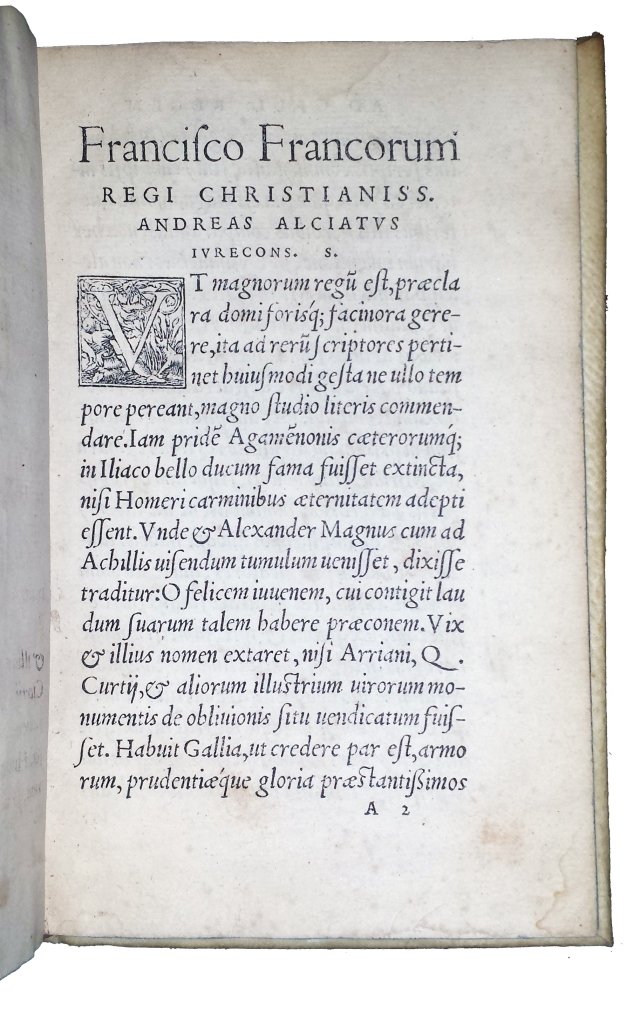 Franciſco Francorum
REGI CHRISTIANISS.
ANDREAS ALCIATVS
IVRECONS. S.
VT magnorum regũ eſt, præcla
ra domi forisq́; facinora gere-
re, ita ad rerũ ſcriptores perti-
net huiuſmodi geſta ne ullo tem
pore pereant, magno ſtudio literis commen-
dare. Iam pridẽ Agamẽnonis cæterorumq́;
in Iliaco bello ducum fama fuiſſet extincta,
niſi Homeri carminibus æternitatem adepti
eſſent. Vnde & Alexander Magnus cum ad
Achillis uiſendum tumulum ueniſſet, dixiſſe
traditur: O felicem iuuenem, cui contigit lau
dum ſuarum talem habere præconem. Vix
& illius nomen extaret, niſi Arriani, Q.
Curtij, & aliorum illuſtrium uirorum mo-
numentis de obliuionis ſitu uendicatum fuiſ-
ſet. Habuit Gallia, ut credere par eſt, armo
rum, prudentiæq́ue gloria præſtantißimos
A 2